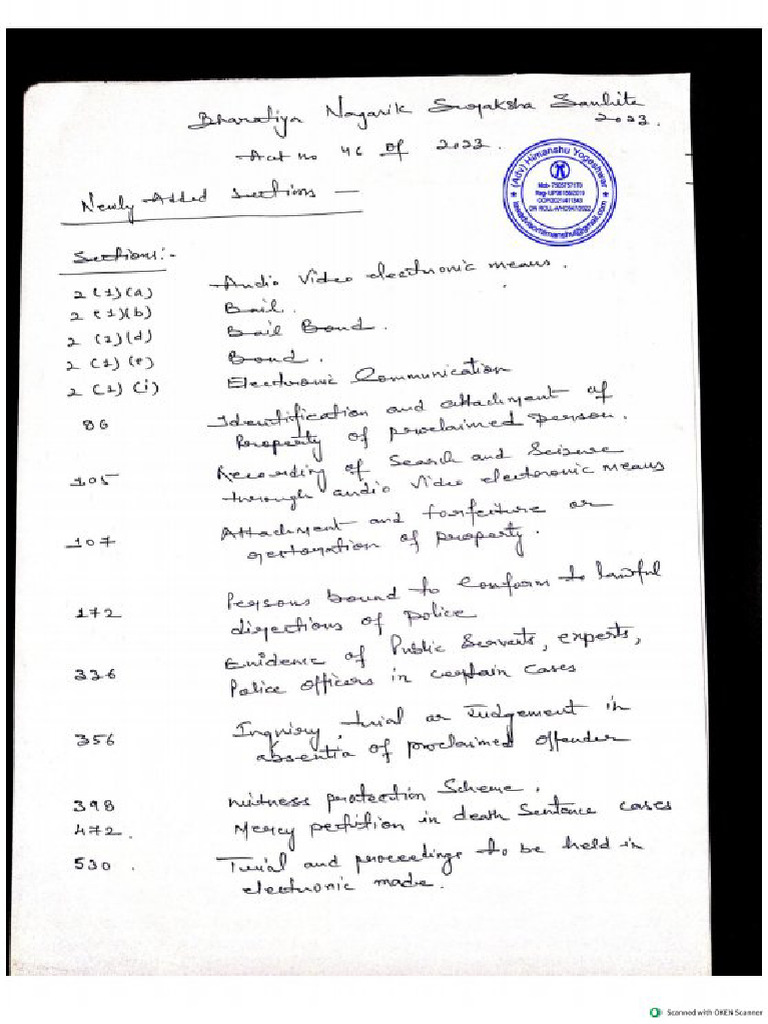 Bharatiya Nagarik Suraksha Sanhita
2023.
Act no 46 of 2023.
(Adv) Himanshu Yogeshwar
Newly Added Sections —
Sections:-
2(1)(a) Audio Video electronic means.
2(1)(b) Bail.
2(1)(d) Bail Bond.
2(1)(e) Bond.
2(1)(i) Electronic Communication
86 Identification and attachment of
Property of proclaimed person.
105 Recording of Search and Seizure
through audio video electronic means
107 Attachment and forfeiture or
restoration of property.
172 Persons bound to conform to lawful
directions of police
336 Evidence of Public Servants, experts,
Police officers in certain cases
356 Inquiry, trial or Judgement in
absentia of proclaimed offender
398 witness protection Scheme.
472. Mercy petition in death Sentence cases
530. Trial and proceedings to be held in
electronic mode.
Scanned with OKEN Scanner